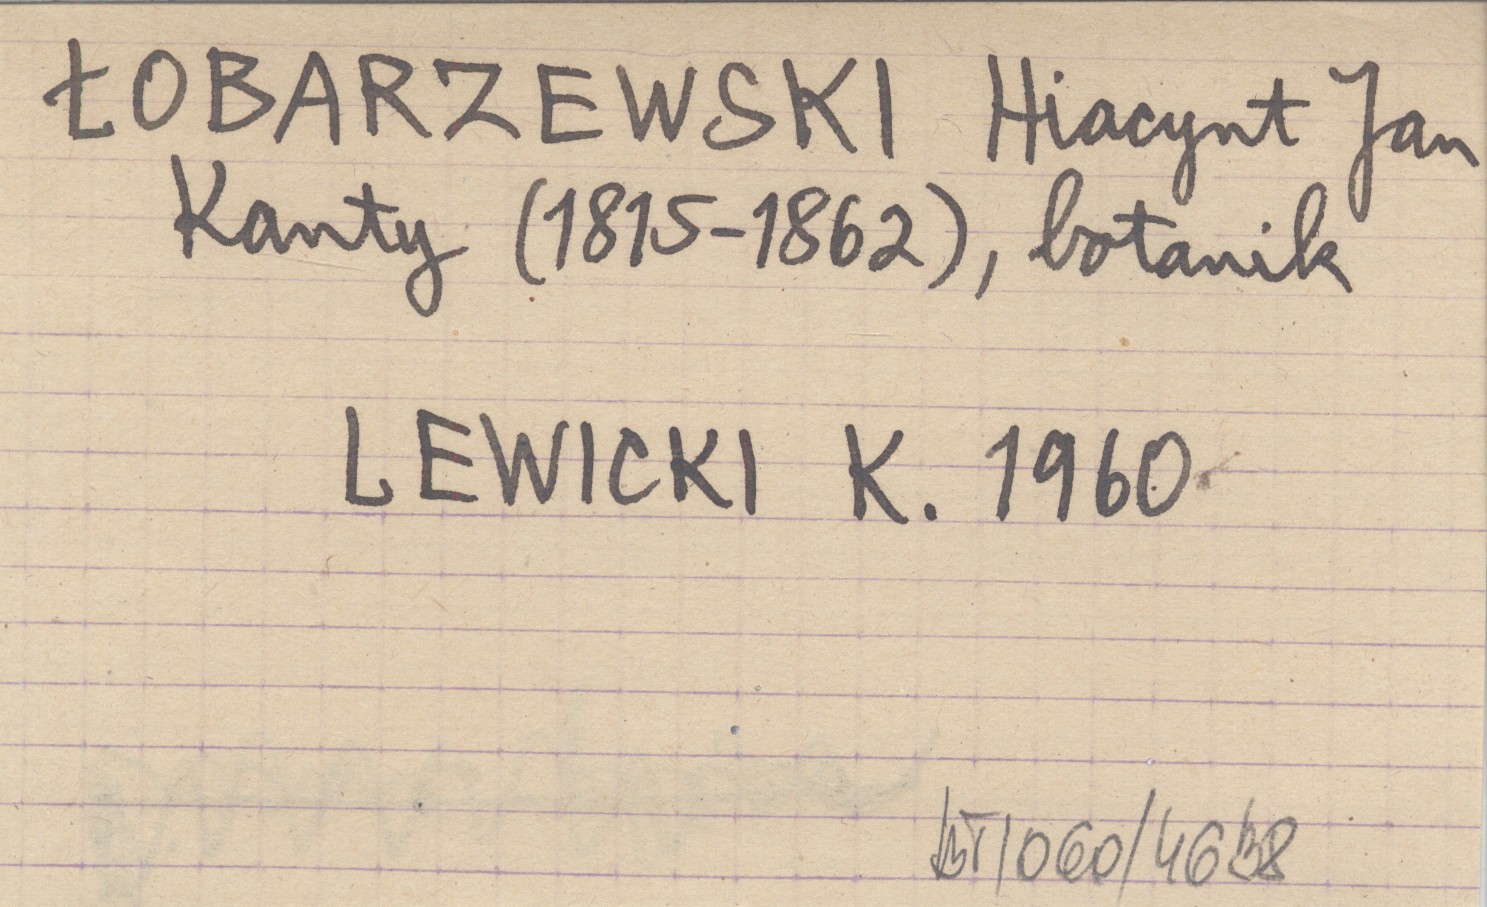 ŁOBARZEWSKI Hiacynt Jan
Kanty (1815-1862), botanik
LEWICKI K. 1960